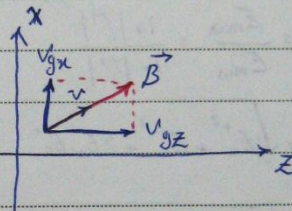 x
Vgx
v
B
Vgz
z